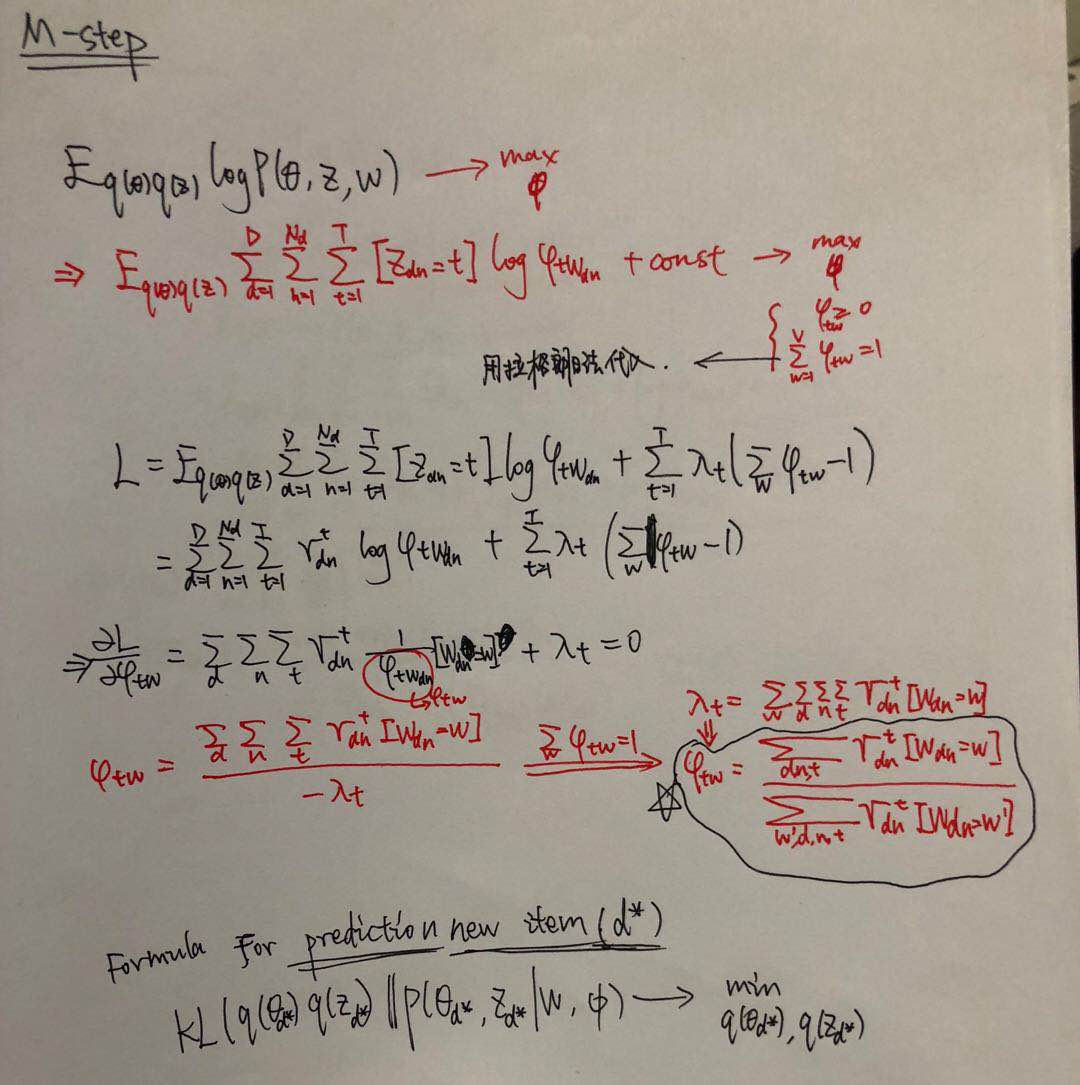 M-step
E_{q(θ)q(z)} log P(θ, z, w) → max_φ
⇒ E_{q(θ)q(z)} Σ_{d=1}^{D} Σ_{n=1}^{N_d} Σ_{t=1}^{T} [z_{dn}=t] log φ_{tw_{dn}} + const → max_φ
{ φ_{tw} ≥ 0
Σ_{w=1}^{V} φ_{tw} = 1
用拉格朗日法代入. ←
L = E_{q(θ)q(z)} Σ_{d=1}^{D} Σ_{n=1}^{N_d} Σ_{t=1}^{T} [z_{dn}=t] log φ_{tw_{dn}} + Σ_{t=1}^{T} λ_t (Σ_w φ_{tw} - 1)
= Σ_{d=1}^{D} Σ_{n=1}^{N_d} Σ_{t=1}^{T} r_{dn}^t log φ_{tw_{dn}} + Σ_{t=1}^{T} λ_t (Σ_w φ_{tw} - 1)
⇒ ∂L/∂φ_{tw} = Σ_d Σ_n Σ_t r_{dn}^t 1/φ_{tw_{dn}} [w_{dn}=w] + λ_t = 0
↳ φ_{tw}
λ_t = Σ_w Σ_d Σ_n Σ_t r_{dn}^t [w_{dn}=w]
⇓
φ_{tw} = Σ_d Σ_n Σ_t r_{dn}^t [w_{dn}=w] / -λ_t ⟹ Σ_w φ_{tw}=1
☆ φ_{tw} = Σ_{d,n,t} r_{dn}^t [w_{dn}=w] / Σ_{w',d,n,t} r_{dn}^t [w_{dn}=w']
Formula For prediction new item (d*)
KL(q(θ_{d*}) q(z_{d*}) || p(θ_{d*}, z_{d*} | w, φ) → min_{q(θ_{d*}), q(z_{d*})}